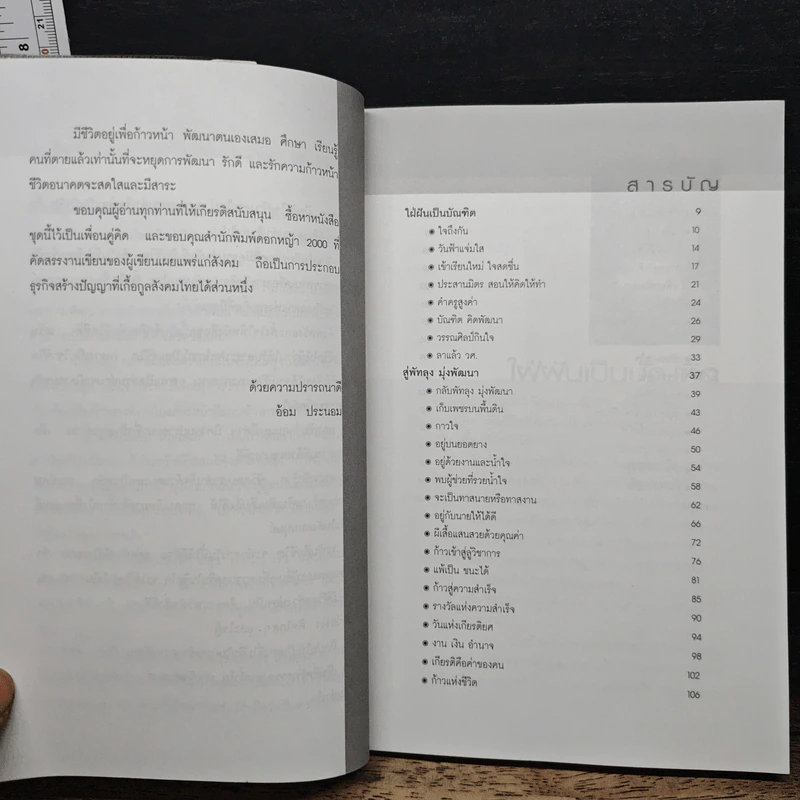 8
21
มีชีวิตอยู่เพื่อก้าวหน้า พัฒนาตนเองเสมอ ศึกษา เรียนรู้
คนที่ตายแล้วเท่านั้นที่จะหยุดการพัฒนา รักดี และรักความก้าวหน้า
ชีวิตอนาคตจะสดใสและมีสาระ
ขอบคุณผู้อ่านทุกท่านที่ให้เกียรติสนับสนุน ซื้อหาหนังสือ
ชุดนี้ไว้เป็นเพื่อนคู่คิด และขอบคุณสำนักพิมพ์ดอกหญ้า 2000 ที่
คัดสรรงานเขียนของผู้เขียนเผยแพร่แก่สังคม ถือเป็นการประกอบ
ธุรกิจสร้างปัญญาที่เกื้อกูลสังคมไทยได้ส่วนหนึ่ง
ด้วยความปรารถนาดี
อ้อม ประนอม
สารบัญ
ใฝ่ฝันเป็นบัณฑิต 9
◉ ใจถึงกัน 10
◉ วันฟ้าแจ่มใส 14
◉ เข้าเรียนใหม่ ใจสดชื่น 17
◉ ประสานมิตร สอนให้คิดให้ทำ 21
◉ คำครูสูงค่า 24
◉ บัณฑิต คิดพัฒนา 26
◉ วรรณศิลป์กินใจ 29
◉ ลาแล้ว วศ. 33
สู่พัทลุง มุ่งพัฒนา 37
◉ กลับพัทลุง มุ่งพัฒนา 39
◉ เก็บเพชรบนพื้นดิน 43
◉ กาวใจ 46
◉ อยู่บนยอดยาง 50
◉ อยู่ด้วยงานและน้ำใจ 54
◉ พบผู้ช่วยที่รวยน้ำใจ 58
◉ จะเป็นทาสนายหรือทาสงาน 62
◉ อยู่กับนายให้ได้ดี 66
◉ ผีเสื้อแสนสวยด้วยคุณค่า 72
◉ ก้าวเข้าสู่ลู่วิชาการ 76
◉ แพ้เป็น ชนะได้ 81
◉ ก้าวสู่ความสำเร็จ 85
◉ รางวัลแห่งความสำเร็จ 90
◉ วันแห่งเกียรติยศ 94
◉ งาน เงิน อำนาจ 98
◉ เกียรติคือค่าของคน 102
◉ ก้าวแห่งชีวิต 106